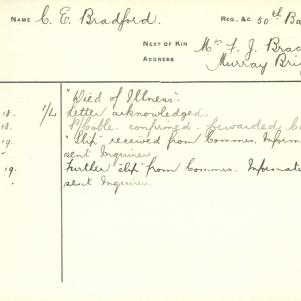 NAME C. E. Bradford. REG. &C. 50th Ba
NEXT OF KIN Mrs F. J. Brad
ADDRESS Murray Bri
"Died of Illness".
18. 1/L Letter acknowledged.
18. P/Cable. confirmed. forwarded
19. "Slip" received from Commrs. Inform
- sent Inquirer
19. Further "slip" from Commrs. Informati
sent Inquirer.